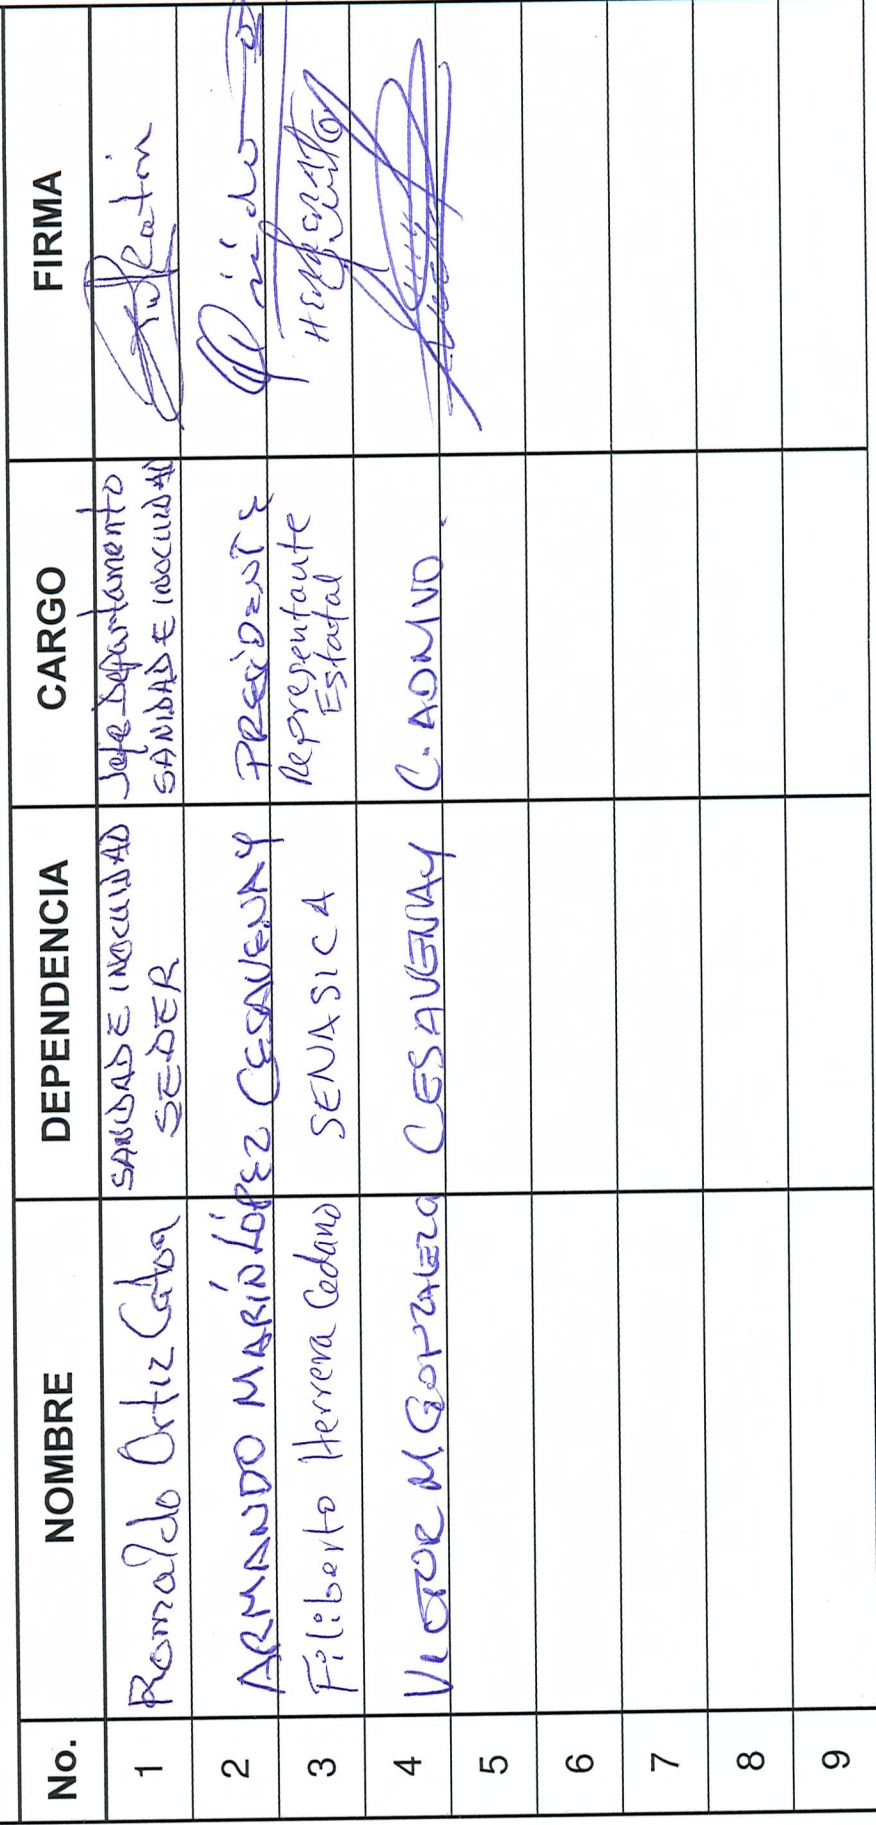 No. NOMBRE DEPENDENCIA CARGO FIRMA
1 Romaldo Ortiz Caton SANIDAD E INOCUIDAD Jefe Departamento
SEDER SANIDAD E INOCUIDAD
2 ARMANDO MARÍN LÓPEZ CESAVENAY PRESIDENTE
3 Filiberto Herrera Cedano SENASICA Representante
Estatal
4 VICTOR M GONZALEZ CESAVENAY C. ADMVO.
5
6
7
8
9